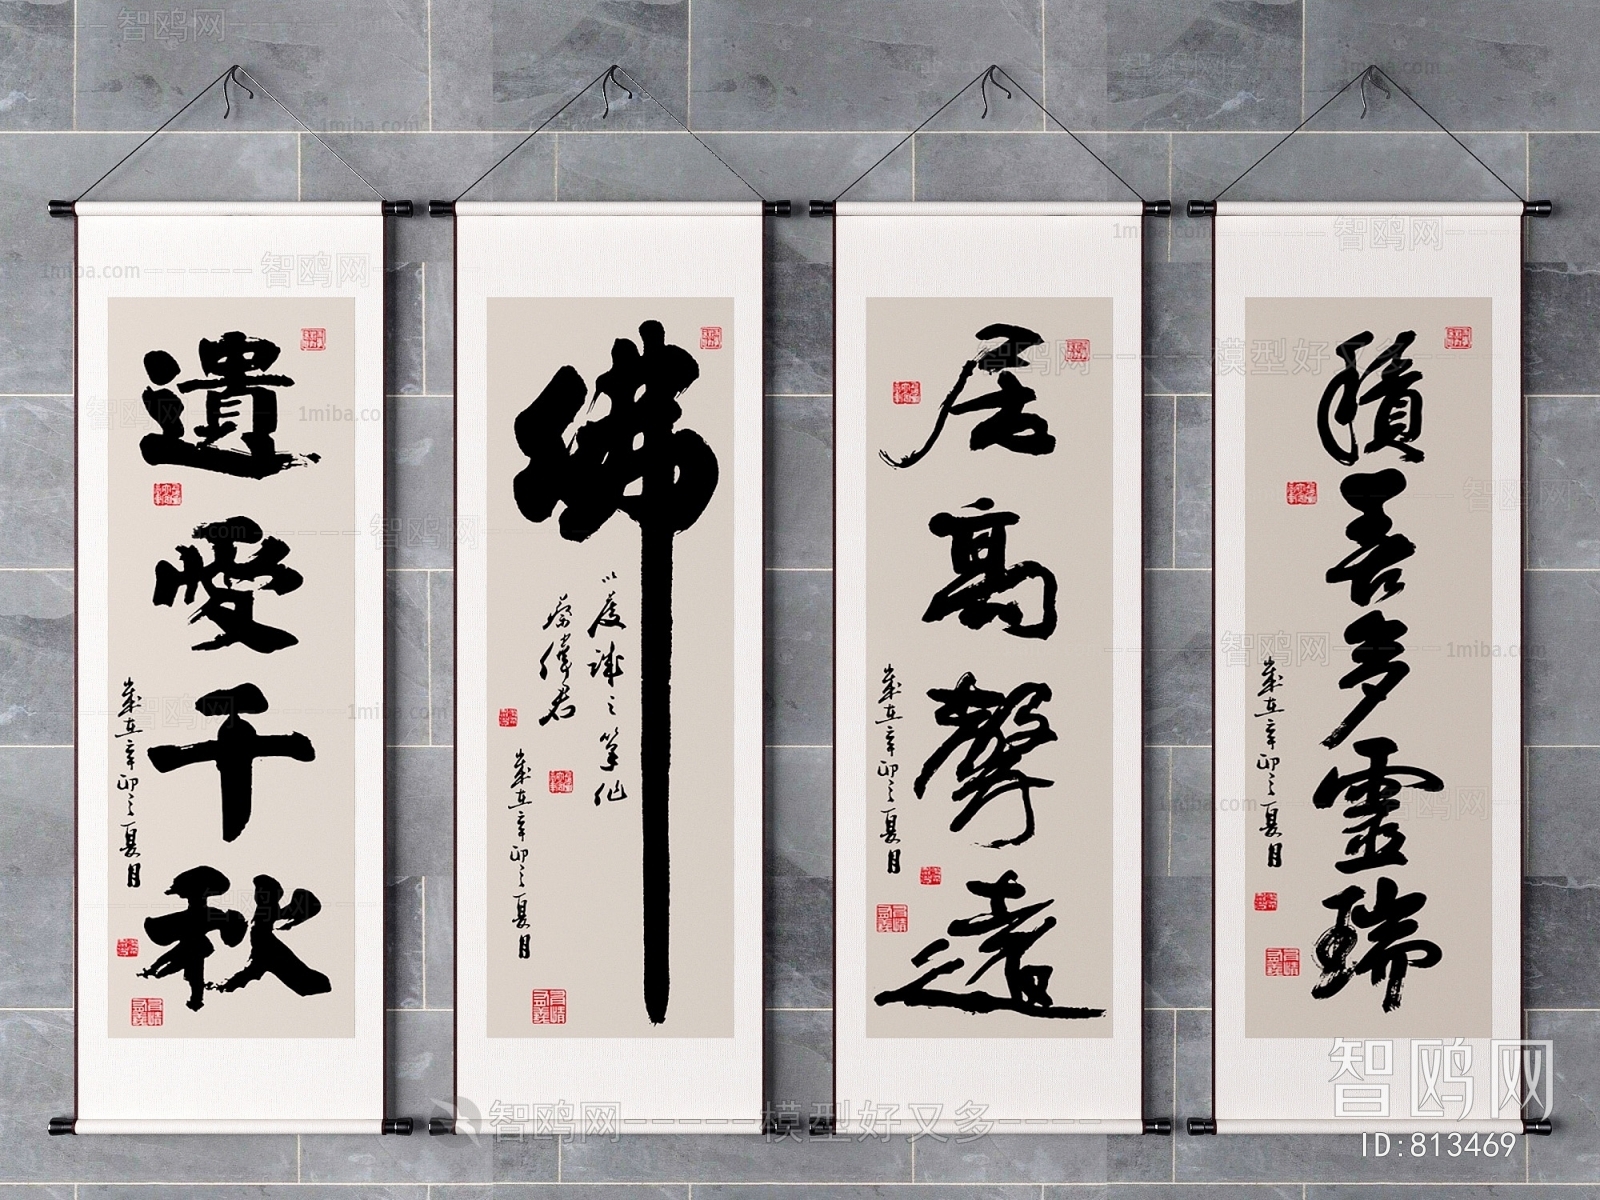 遺愛千秋
歲在辛卯之夏月
佛
以虔誠之筆作
蔡偉君
歲在辛卯之夏月
居高聲遠
歲在辛卯之夏月
積善多靈瑞
歲在辛卯之夏月
智鸥网
1miba.com
智鸥网-----模型好又多
智鸥网
ID:813469